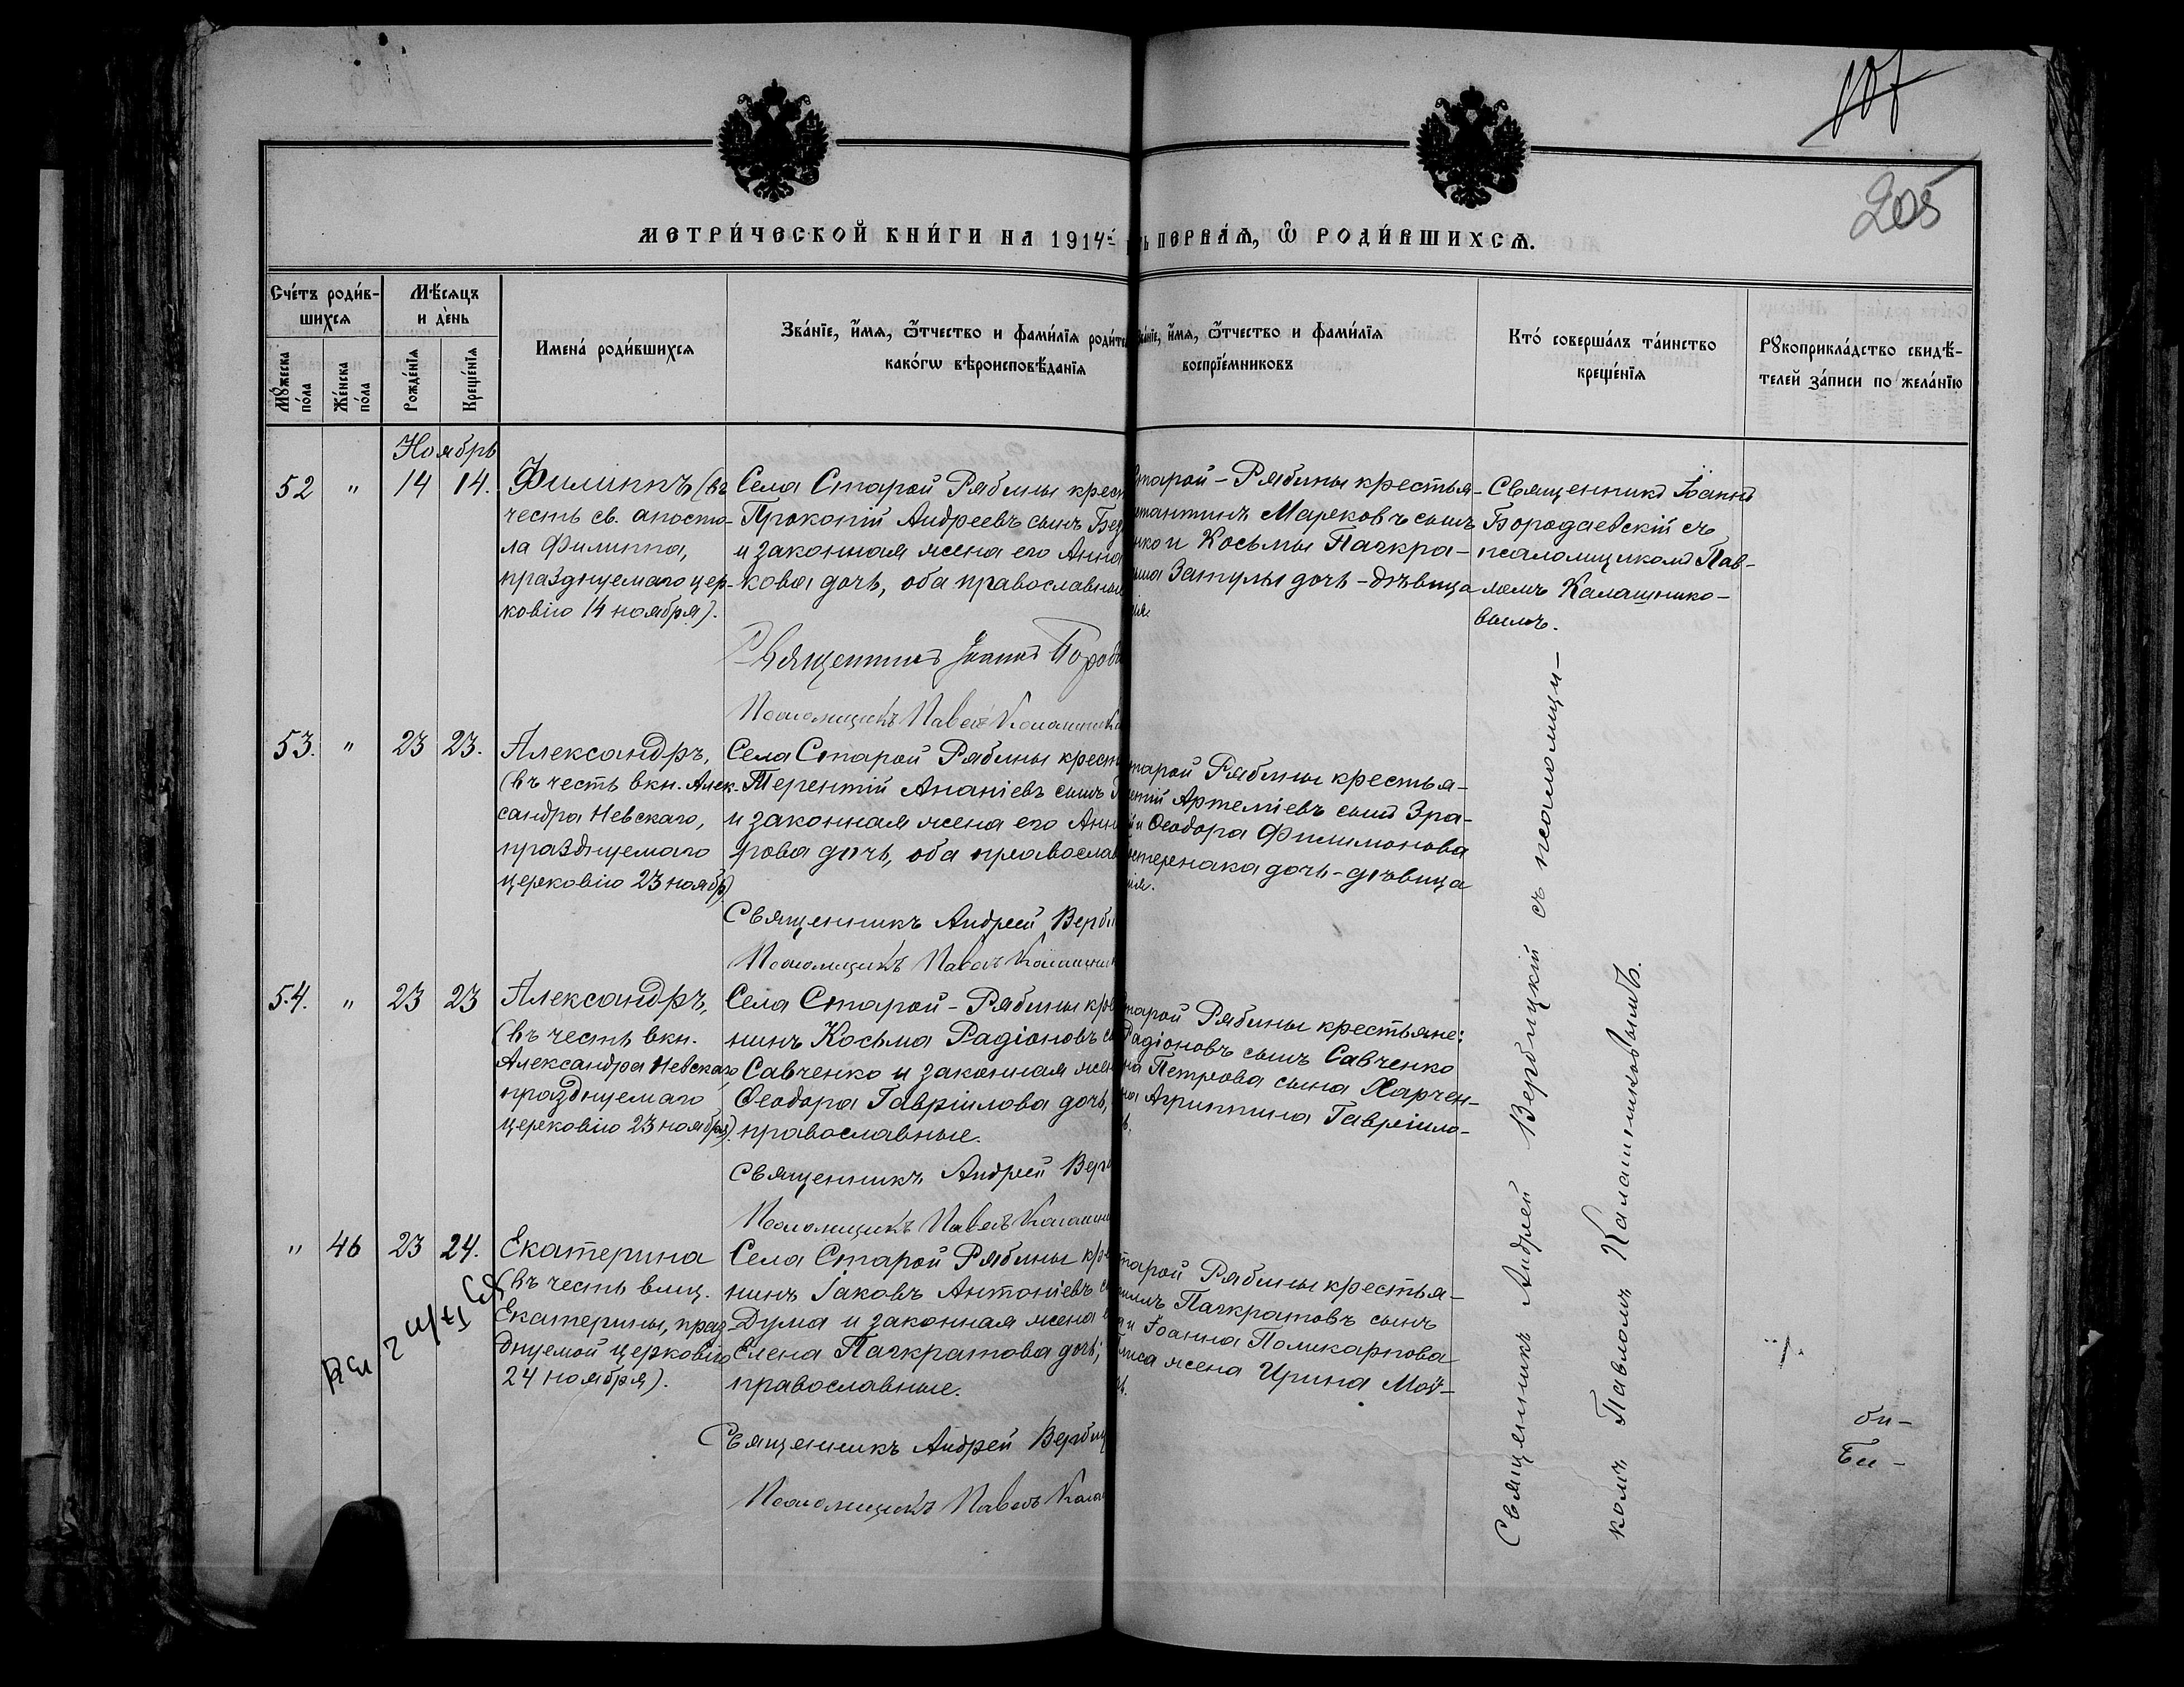 107
205
МЕТРИ́ЧЕСКОЙ КНИ́ГИ НА 1914й
ПЕРВАѦ, Ѿ РОДИ́ВШИХСѦ.
Сче́тъ роди́в-
шихсѧ
Мꙋ́жеска
по́ла
Же́нска
по́ла
Мѣ́сѧцъ
и де́нь
Рожде́нїѧ
Креще́нїѧ
Имена́ роди́вшихсѧ
Зва́нїе, и́мѧ, ѻ҆́тчество и фами́лїѧ роди́те
како́гѡ вѣроисповѣ́данїѧ
и́мѧ, ѻ҆́тчество и фами́лїѧ
воспрїе́мниковъ
Кто́ соверша́лъ та́инство
креще́нїѧ
Рꙋкоприкла́дство свидѣ́-
телей за́писи по жела́нїю
Ноябрь
52 " 14 14.
Филиппъ (въ
честь св. апосто-
ла Филиппа,
празднуемаго цер-
ковію 14 ноября).
Села Старой Рябины крес
Прокопій Андреевъ сынъ Бед
и законная жена его Анна
кова дочь, оба православн
Священникъ Іоаннъ Бород
Псаломщикъ Павелъ Калашник
тарой-Рябины крестья-
стантинъ Марковъ сынъ
нко и Косьмы Панкра-
Затулы дочь-дѣвица
Священникъ Іоаннъ
Бородаевскій съ
псаломщикомъ Пав-
ломъ Калашнико-
вымъ.
53. " 23 23.
Александръ,
(въ честь вкн. Алек-
сандра Невскаго,
празднуемаго
церковію 23 ноябр)
Села Старой Рябины крест
Терентій Ананіевъ сынъ
и законная жена его Анн
рова дочь, оба православ
Священникъ Андрей Верби
Псаломщикъ Павелъ Калашни
тарой Рябины крестья-
ентій Артеміевъ сынъ Зра-
и Ѳеодора Филимонова
стернака дочь-дѣвица
54. " 23 23
Александръ,
(въ честь вкн.
Александра Невскаго
празднуемаго
церковію 23 ноября).
Села Старой-Рябины кре
нинъ Косьма Радіоновъ с
Савченко и законная жен
Ѳеодора Гавріилова дочь,
православные.
Священникъ Андрей Верб
Псаломщикъ Павелъ Калашн
тарой Рябины крестьяне:
Радіоновъ сынъ Савченко
на Петрова сына Харчен-
на Агриппина Гавріило-
" 46 23 24.
Екатерина
(въ честь влмц.
Екатерины, праз
днуемой церковію
24 ноября).
Села Старой Рябины кре
нинъ Іаковъ Антоніевъ с
Дума и законная жена
Елена Панкратова дочь;
православные.
Священникъ Андрей Вербиц
Псаломщикъ Павелъ Кала
тарой Рябины крестья-
Панкратовъ сынъ
и Іоанна Поликарпова
жена Ирина Мой-
Священникъ Андрей Вербицкій съ псаломщи-
комъ Павломъ Калашниковымъ.